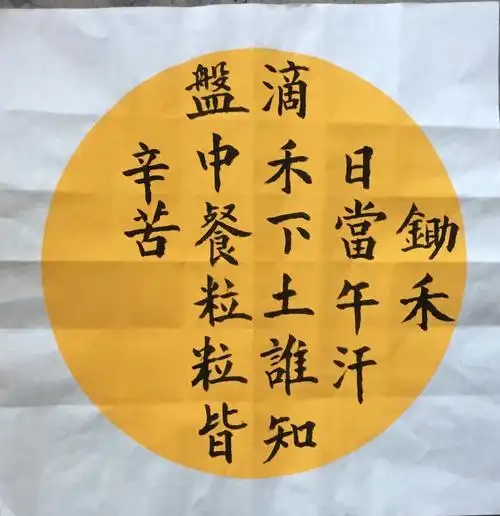 鋤禾
日當午汗
滴禾下土誰知
盤申餐粒粒皆
辛苦